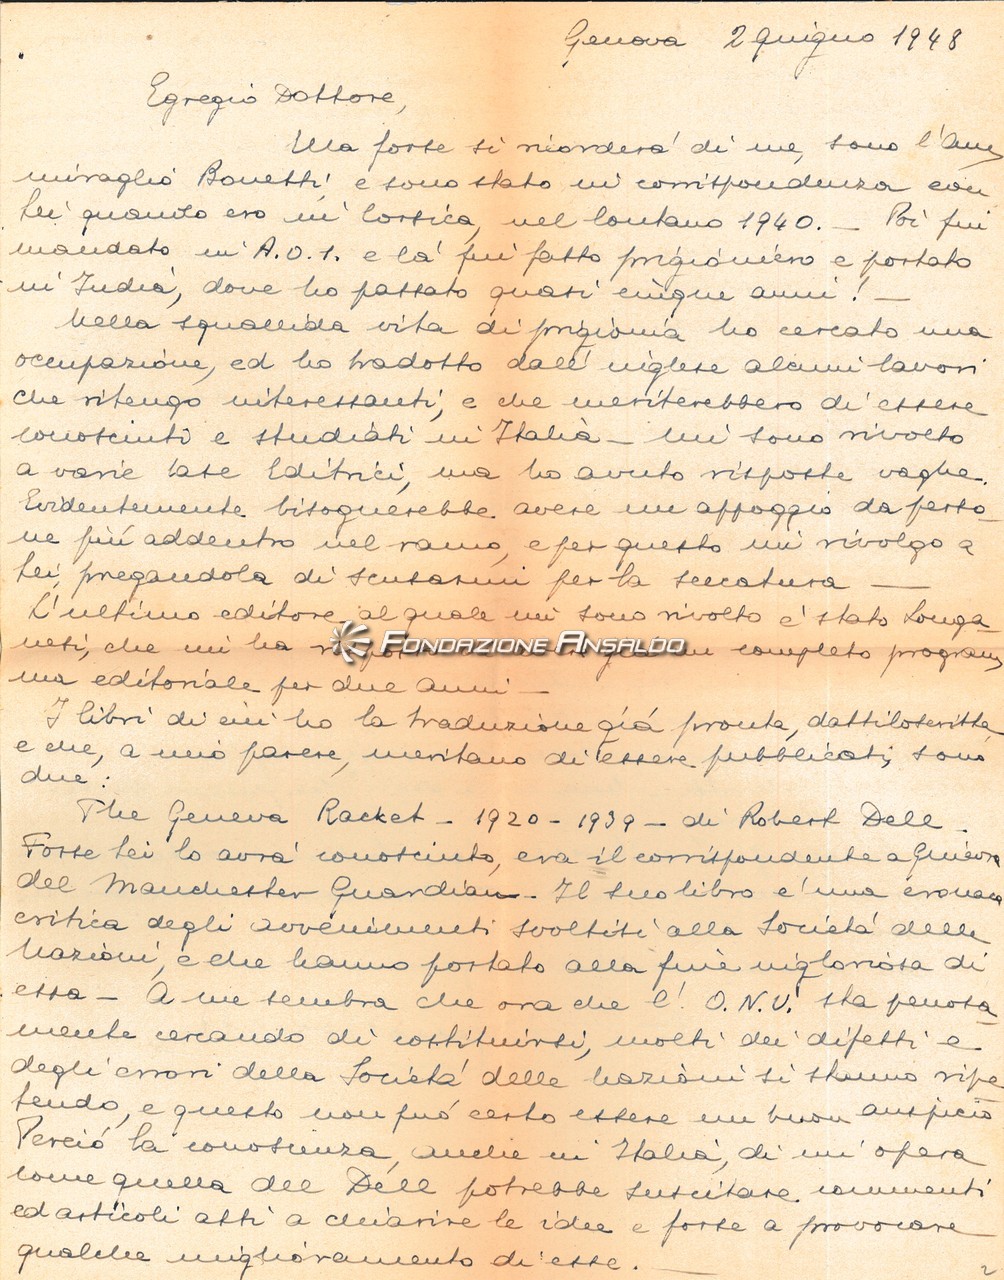 Genova 2 giugno 1948
Egregio Dottore,
Ella forse si ricorderà di me, sono l'Am
miraglio Bonetti, e sono stato in corrispondenza con
Lei quando ero in Corsica, nel lontano 1940. — Poi fui
mandato in A.O.I. e là fui fatto prigioniero e portato
in India, dove ho passato quasi cinque anni! —
Nella squallida vita di prigionia ho cercato una
occupazione, ed ho tradotto dall'inglese alcuni lavori
che ritengo interessanti, e che meriterebbero di essere
conosciuti e studiati in Italia — Mi sono rivolto
a varie Case Editrici, ma ho avuto risposte vaghe.
Evidentemente bisognerebbe avere un appoggio da perso-
ne più addentro nel ramo, e per questo mi rivolgo a
Lei, pregandola di scusarmi per la seccatura —
L'ultimo editore al quale mi sono rivolto è stato Longa-
nesi, che mi ha un completo program
FONDAZIONE ANSALDO
ma editoriale per due anni —
I libri di cui ho la traduzione già pronta, dattiloscritta
e che, a mio parere, meritano di essere pubblicati, sono
due:
The Geneva Racket — 1920 - 1939 — di Robert Dell —
Forse Lei lo avrà conosciuto, era il corrispondente a Ginevra
del Manchester Guardian — Il suo libro è una cronaca
critica degli avvenimenti svoltisi alla Società delle
Nazioni, e che hanno portato alla fine ingloriosa di
essa — A me sembra che ora che l'O.N.U. sta penosa-
mente cercando di costituirsi, molti dei difetti e
degli errori della Società delle Nazioni si stanno ripe-
tendo, e questo non può certo essere un buon auspicio
Perciò la conoscenza, anche in Italia, di un'opera
come quella del Dell potrebbe suscitare commenti
ed articoli atti a chiarire le idee e forse a provocare
qualche miglioramento di esse. —
2